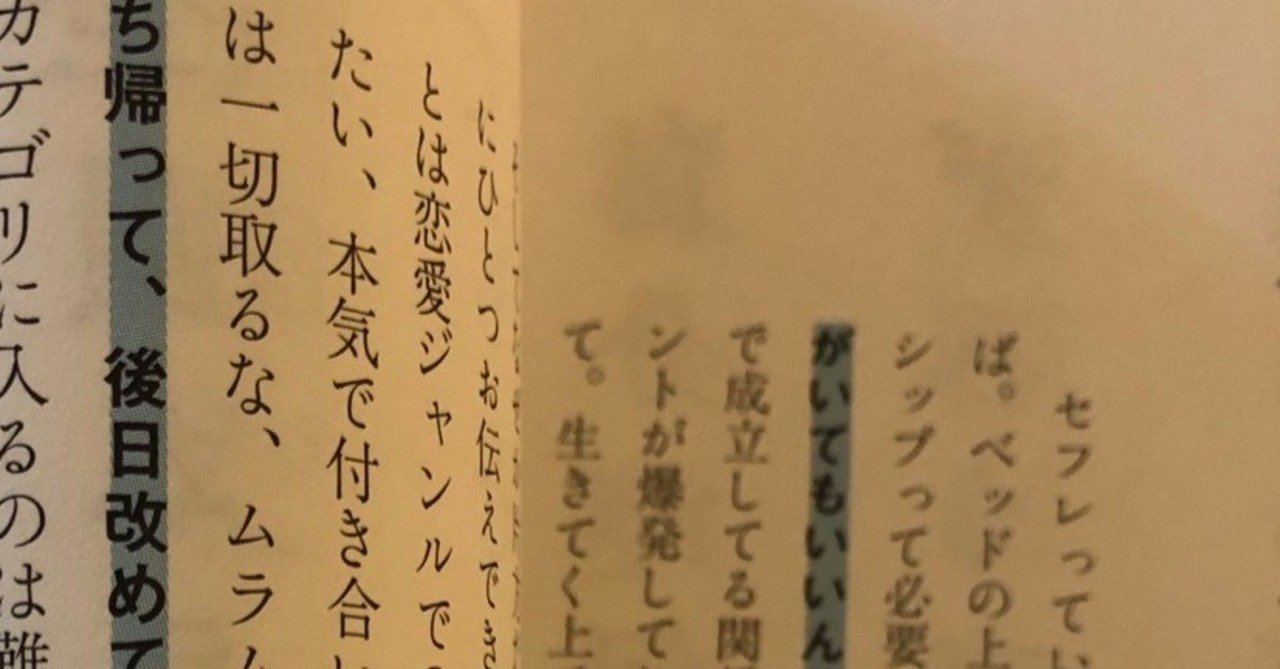 セフレってい
ば。ベッドの上
シップって必要
がいてもいいん
で成立してる関
ントが爆発して
て。生きてく上
にひとつお伝えでき
とは恋愛ジャンルで
たい、本気で付き合い
は一切取るな、ムラム
ち帰って、後日改めて
カテゴリに入るのは難